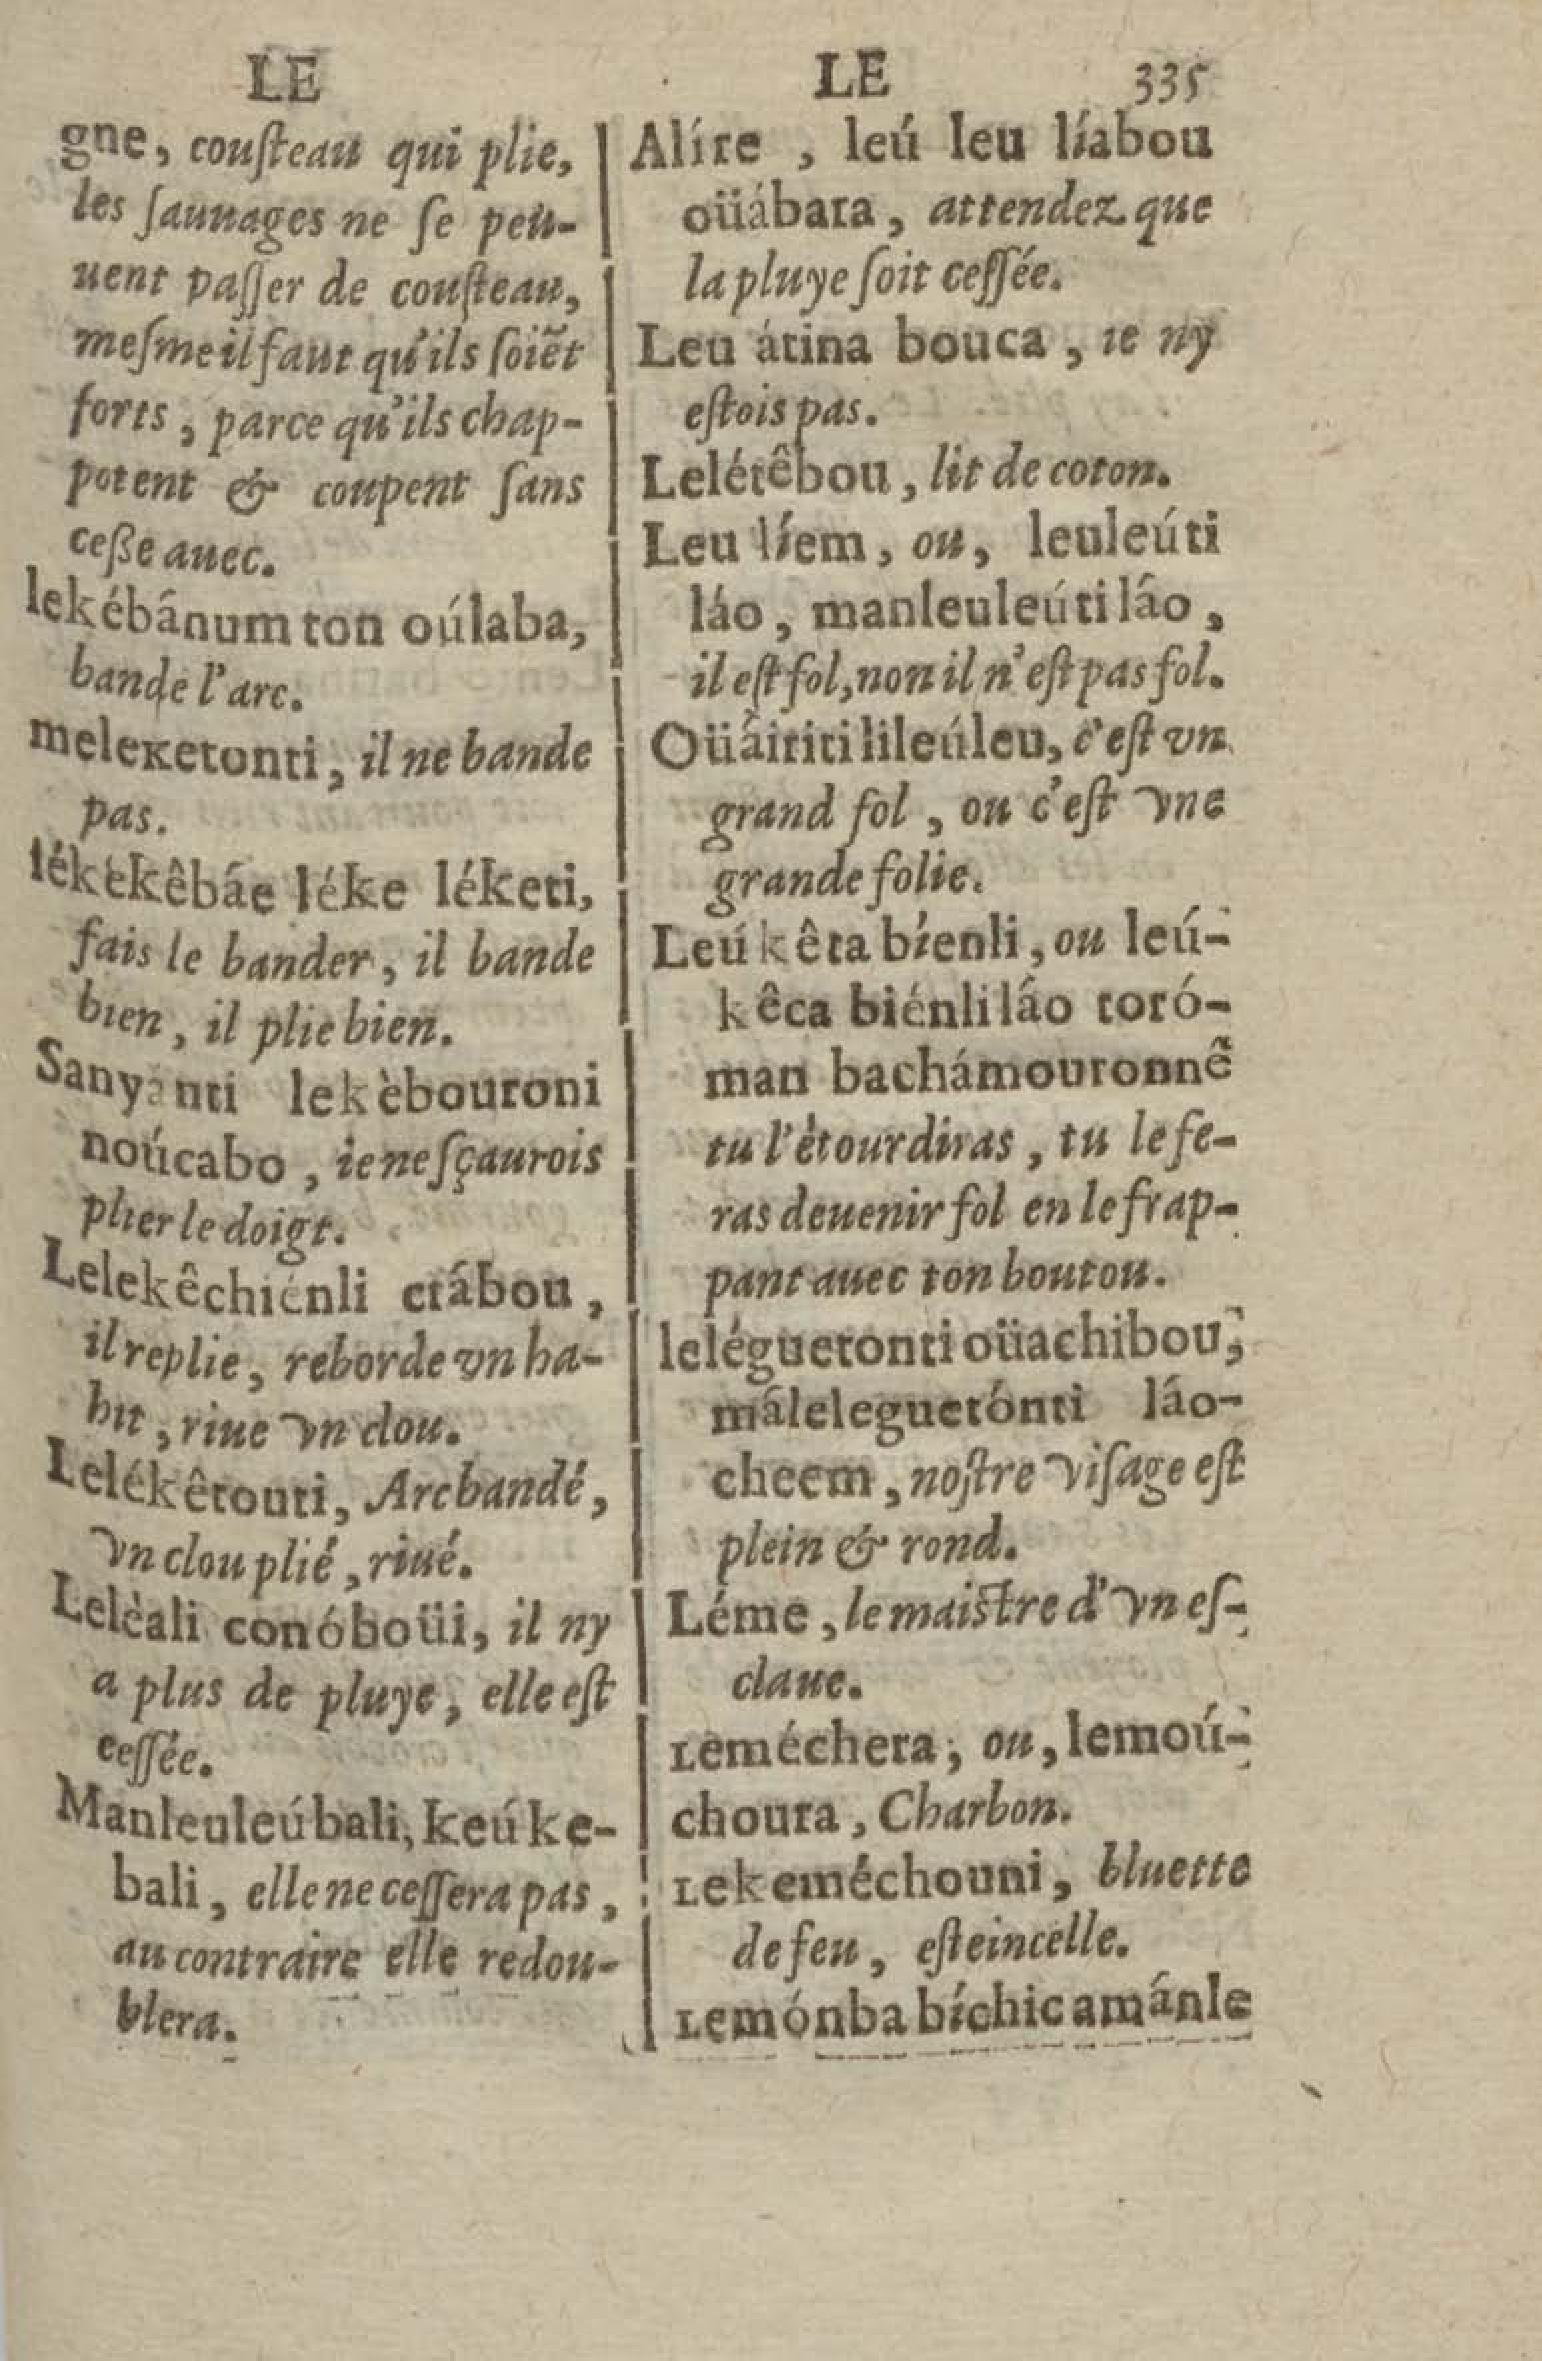 LE
gne, couſteau qui plie,
les ſauuages ne ſe peu-
uent paſſer de couſteau,
meſme il faut qu'ils ſoiẽt
forts, parce qu'ils chap-
potent & coupent ſans
ceße auec.
lekébânum ton oúlaba,
bande l'arc.
meleketonti, il ne bande
pas.
lékekêbáe léke léketi,
fais le bander, il bande
bien, il plie bien.
Sanyánti lekèbouroni
noúcabo, ie ne ſçaurois
plier le doigt.
Lelekêchiénli ctábou,
il replie, reborde vn ha-
bit, riue vn clou.
Lelékêtouti, Arc bandé,
vn clou plié, riué.
Lelèali conóboüi, il ny
a plus de pluye, elle eſt
ceſſée.
Manleuleúbali, keúke-
bali, elle ne ceſſera pas,
au contraire elle redou-
blera.
LE 335
Alíre, leú leu líabou
oüábara, attendez que
la pluye ſoit ceſſée.
Leu átina bouca, ie ny
eſtois pas.
Lelétêbou, lit de coton.
Leu líem, ou, leuleúti
láo, manleuleúti láo,
il eſt fol, non il n'eſt pas fol.
Oüâiriti lileúleu, c'eſt vn
grand fol, ou c'eſt vne
grande folie.
Leúkêta bíenli, ou leú-
kêca biénli láo toró-
man bachámouronnẽ
tu l'étourdiras, tu le fe-
ras deuenir fol en le frap-
pant auec ton boutou.
leléguetonti oüachibou,
máleleguetónti láo-
cheem, noſtre viſage eſt
plein & rond.
Léme, le maiſtre d'vn eſ-
claue.
Leméchera, ou, lemoú-
choura, Charbon.
Lekeméchouni, bluette
de feu, eſteincelle.
Lemónba bíchic amánle